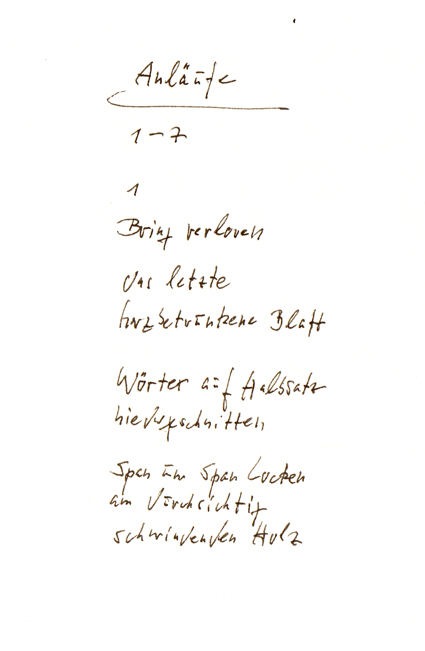 Anläufe
1–7
1
Bring verloren
das letzte
harzbetrunkene Blatt
Wörter auf Halbsatz
Span um Span Locken
am durchsichtig
schwindenden Holz